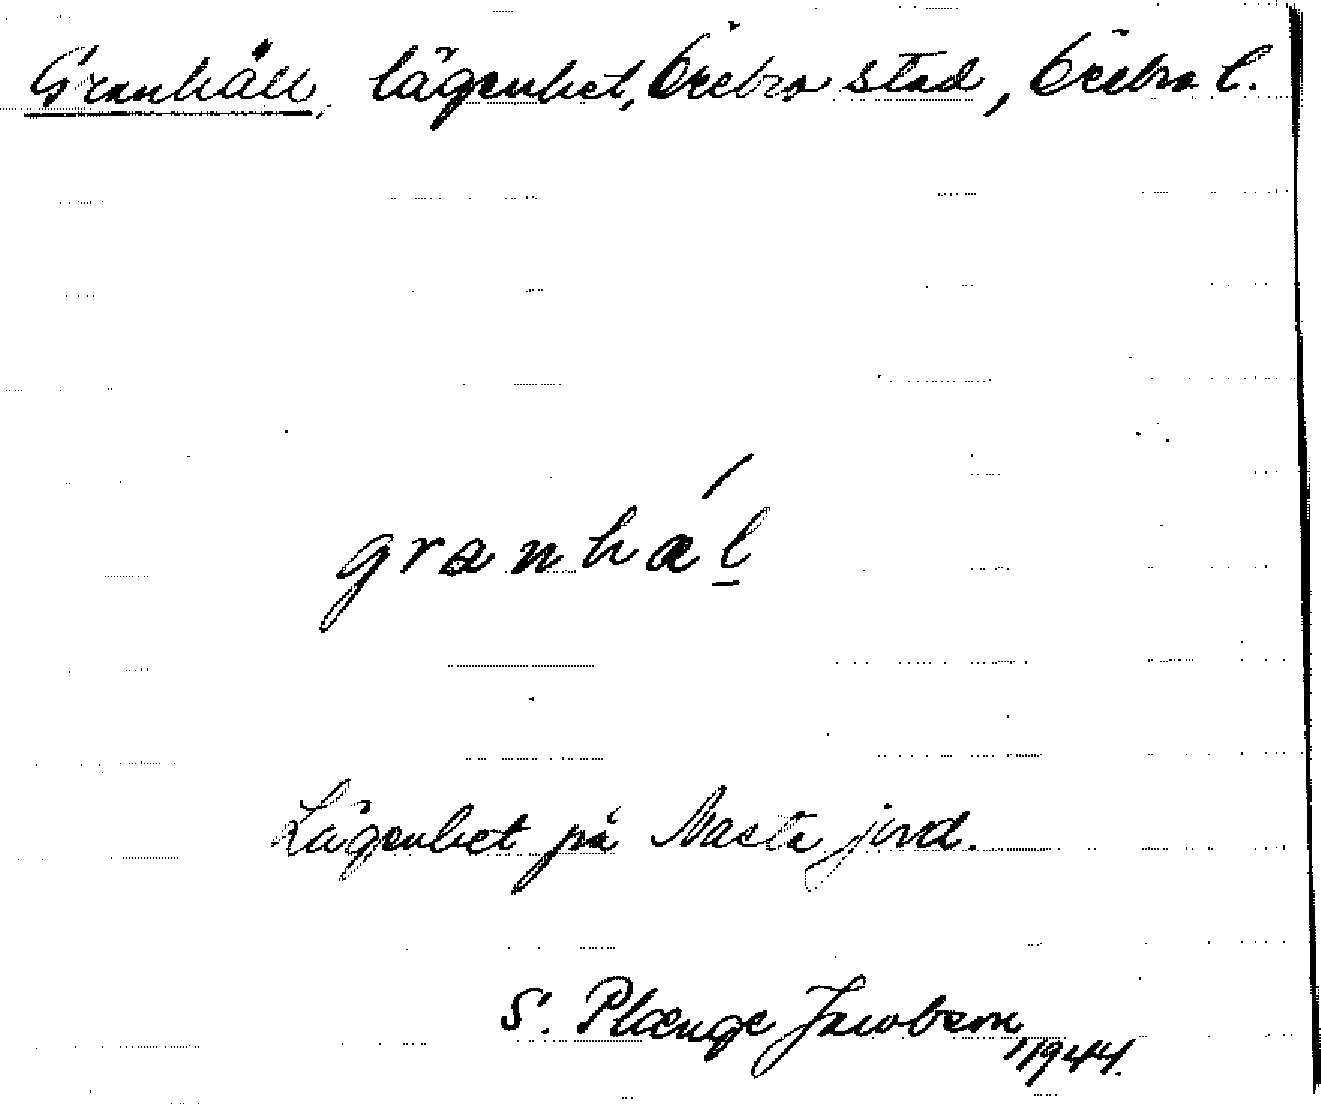 Granhäll, lägenhet, Örebro stad, Örebro l.
granhæ´l
Lägenhet på Nasta jord.
S. Plænge Jacobson 1944.